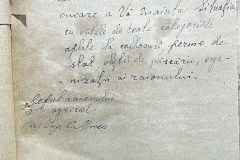 oncare a Vă înainta situația
cu vitele de toate categoriile
aflate la colhozuri, ferme de
stat, obștii de păscări, orga-
nizații ai raionului.
Șeful raionului
agricol